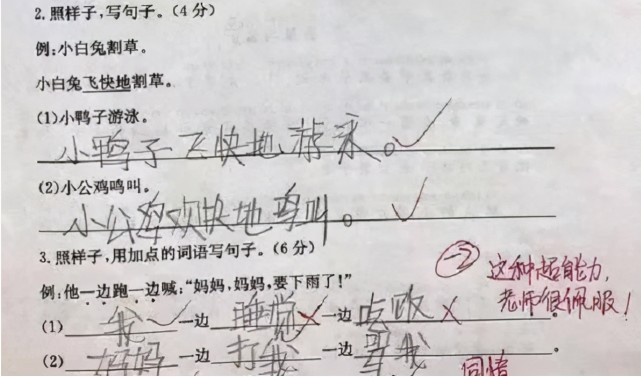 2.照样子,写句子。(4分)
例:小白兔割草。
小白兔飞快地割草。
(1)小鸭子游泳。
小鸭子飞快地游泳。
(2)小公鸡鸣叫。
小公鸡欢快地鸣叫。
3.照样子,用加点的词语写句子。(6分)
例:他一边跑一边喊:“妈妈,妈妈,要下雨了!”
-2 这种超能力,
老师很佩服!
(1)我一边睡觉一边吃饭。
(2)妈妈一边打我一边骂我
同情